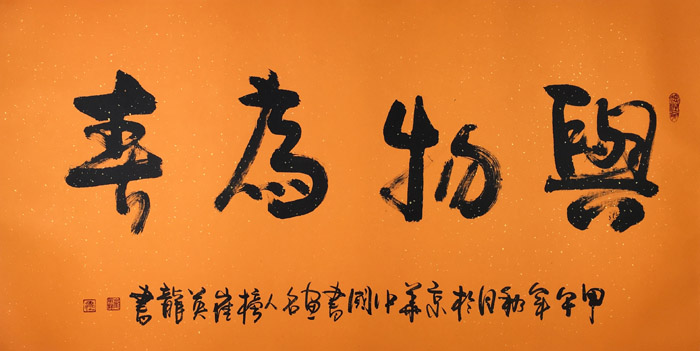 與物為春
甲午年秋日於京華中國書画名人榜崔英龍書